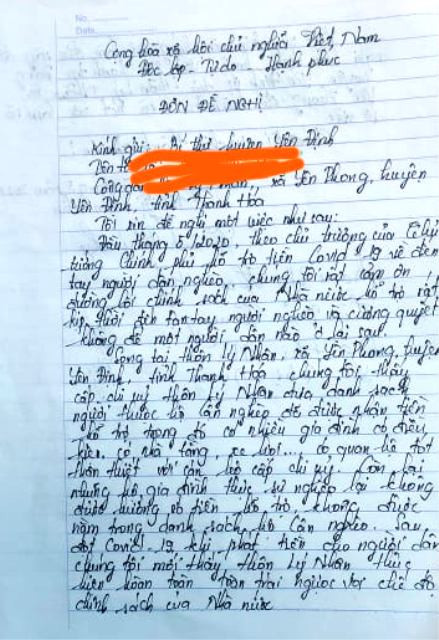 No.
Date.
Cộng hòa xã hội chủ nghĩa Việt Nam
Độc lập - Tự do - Hạnh phúc
ĐƠN ĐỀ NGHỊ
Kính gửi: Bí thư huyện Yên Định
Tên tôi
Công dân xã Yên Phong, huyện
Yên Định, tỉnh Thanh Hóa
Tôi xin đề nghị một việc như sau:
Đầu tháng 5/2020, theo chủ trương của
tướng Chính phủ hỗ trợ tiền Covid 19 về đến
tay người dân nghèo, chúng tôi rất cảm ơn,
đường lối chính sách của Nhà nước hỗ trợ rất
kịp thời đến tận tay người nghèo và cương quyết
không để một người dân nào ở lại sau.
Song tại thôn Lý Nhân, xã Yên Phong, huyện
Yên Định, tỉnh Thanh Hóa chúng tôi thấy
cấp chi ủy thôn Lý Nhân đưa danh sách
người thuộc hộ cận nghèo để được nhận tiền
hỗ trợ trong đó có nhiều gia đình có điều
kiện, có nhà tầng, xe hơi... có quan hệ tốt
thân thiết với cán bộ cấp chi ủy. Còn lại
những hộ gia đình thực sự nghèo lại không
được hưởng số tiền hỗ trợ, không được
nằm trong danh sách hộ cận nghèo. Sau
đợt Covid-19 khi phát tiền cho người dân
chúng tôi mới thấy thôn Lý Nhân thực
hiện hoàn toàn trái ngược với chế độ
chính sách của Nhà nước